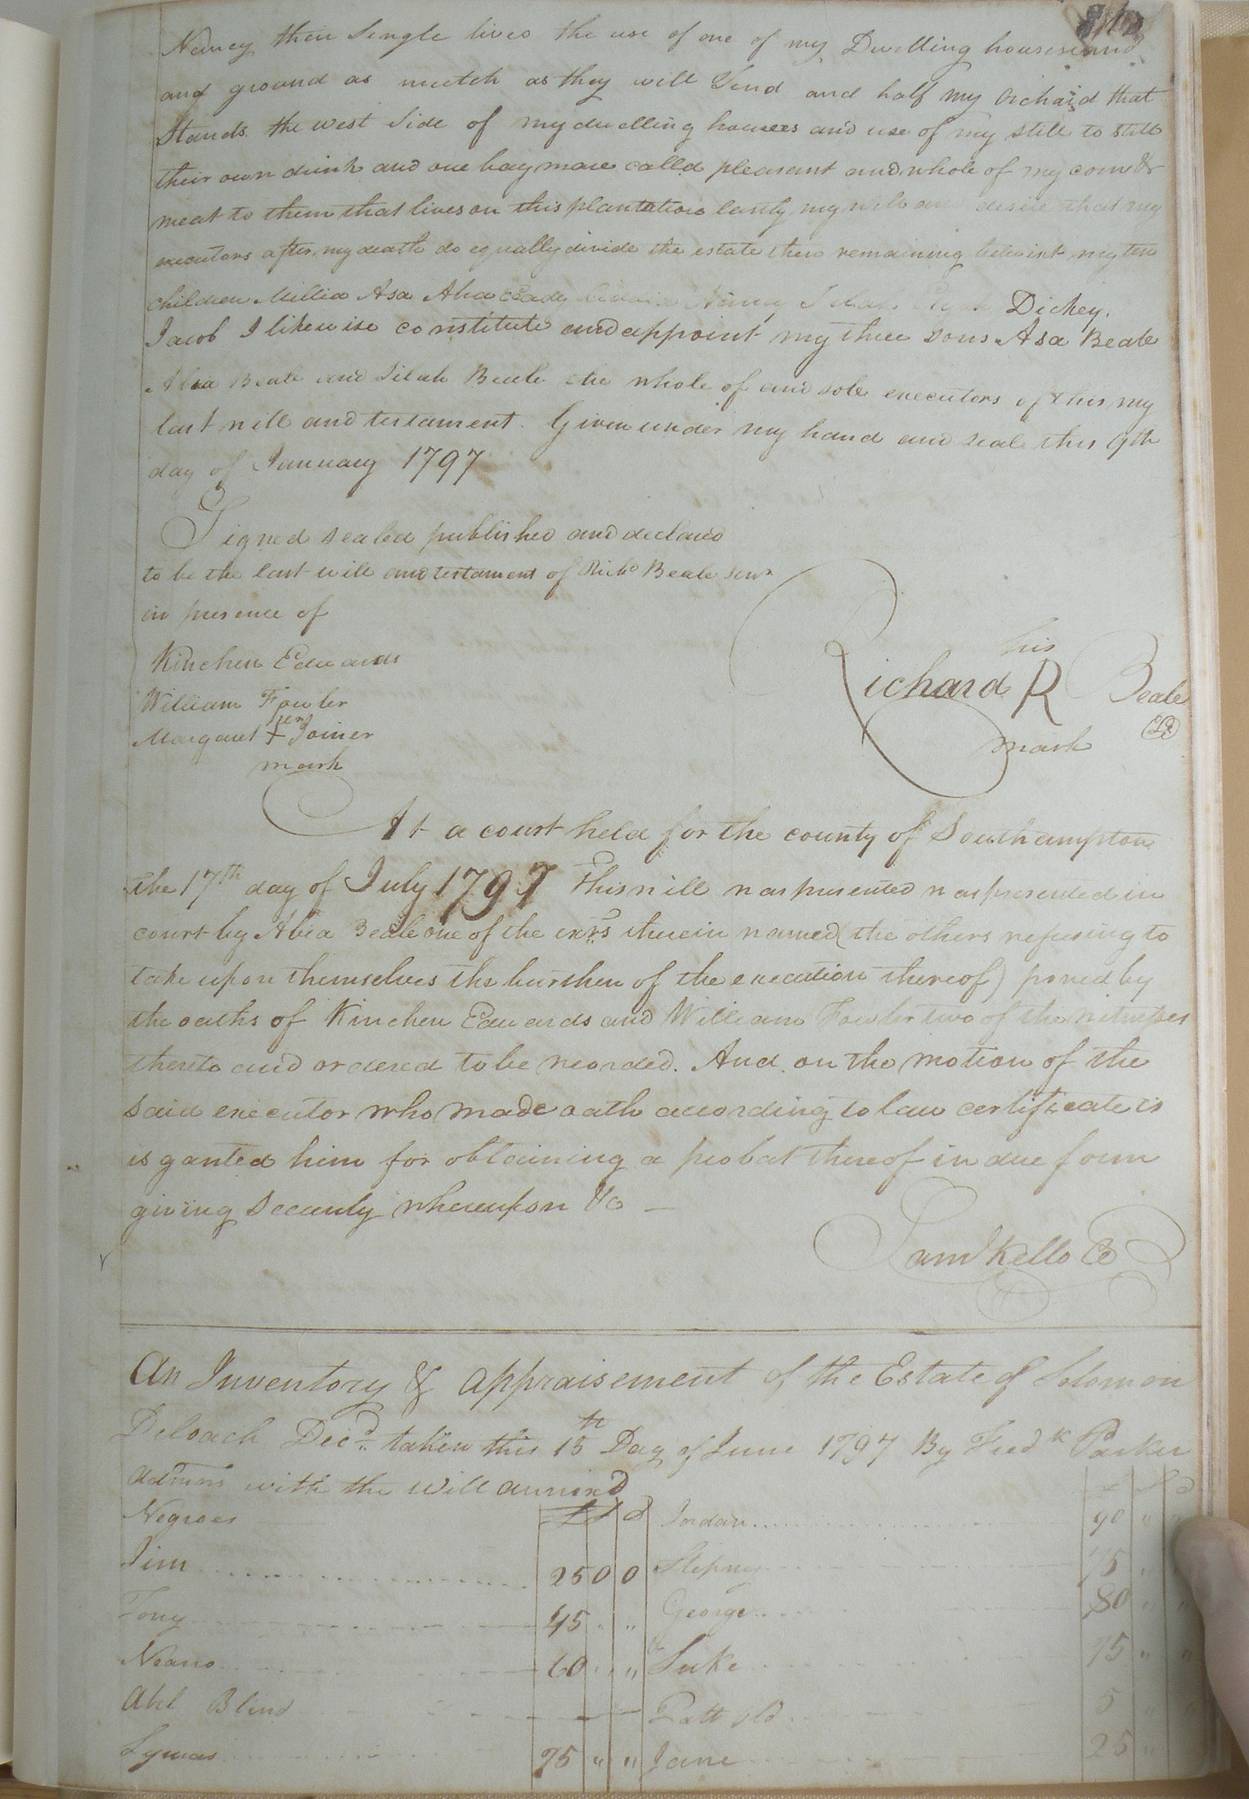 Nancy their Single lives the use of one of my Dwelling houses and
and ground as mutch as they will Tend and half my Orchard that
Stands the west Side of my dwelling houses and use of my still to still
their own drink and one bay mare called pleasant and whole of my corn &
meat to them that lives on this plantation lastly my will and desire that my
executors after my death do equally divide the estate then remaining betwixt my ten
children Millia Asa Abia Nancy Dickey.
Jacob I likewise constitute and appoint my three sons Asa Beale
Abia Beale and Silah Beale the whole of and sole executors of this my
last will and testament. Given under my hand and seale this 9th
day of Jannuary 1797
Signed sealed published and declared
to be the last will and testament of Richd Beale senr
in presence of
Kinchen Edwards
William Fowler
Margaret her + Joiner
mark
his
Richard R Beale
mark
LS
At a court held for the county of Southampton
the 17th day of July 1797 This will was presented was presented in
court by Abia Beale one of the exrs therein named (the others refusing to
take upon themselves the burthen of the execution thereof) proved by
the oaths of Kinchen Edwards and William Fowler two of the witnesses
thereto and ordered to be recorded. And on the motion of the
said executor who made oath according to law certificate is
is ganted him for obtaining a probat thereof in due form
giving Security whereupon &c
Saml Kello CC
An Inventory & Appraisement of the Estate of Solomon
Deloach Decd. taken this 15th Day of June 1797 By Fredk Parker
Admrs with the will annexd
Negroes £ S d Jordan 90 " "
Jim 25 0 0 Stepney 75 " "
Tony 45 " " George 80 " "
60 " " Luke 75 " "
Abel Blind — — — Patt old 5 " "
Lymas 75 " " Jane 25 " "